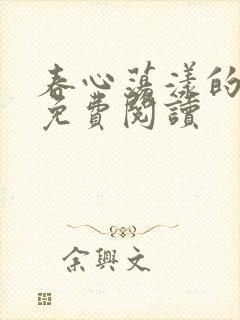 春心荡漾的
免費閱讀
余興文